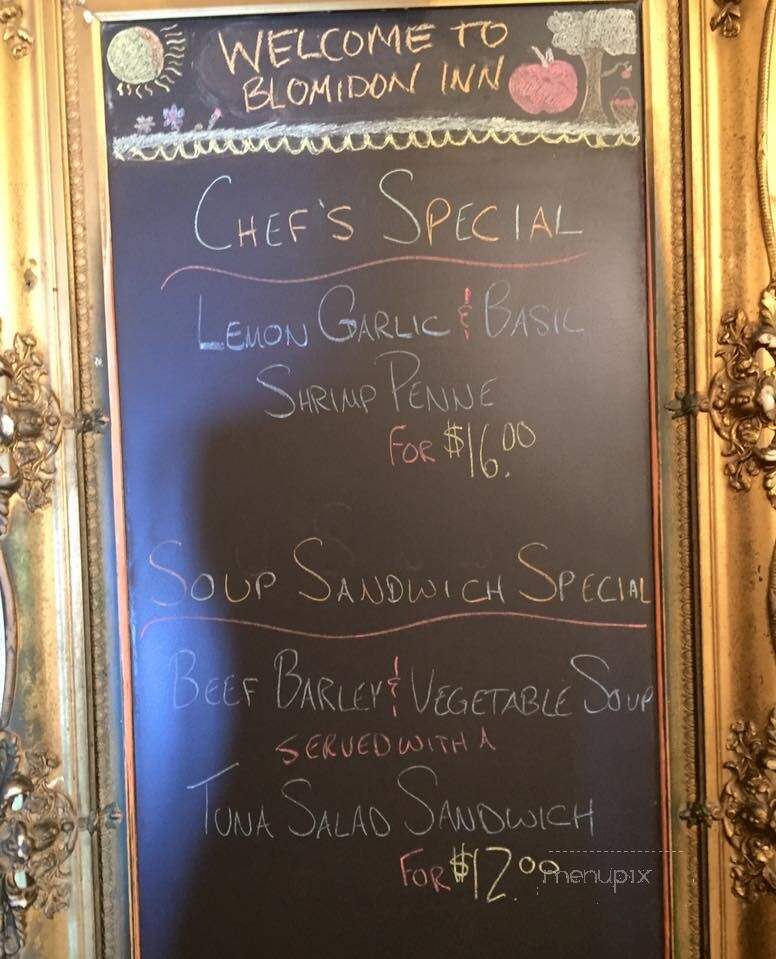 WELCOME TO
BLOMIDON INN
CHEF'S SPECIAL
LEMON GARLIC & BASIC
SHRIMP PENNE
FOR $16.00
SOUP SANDWICH SPECIAL
BEEF BARLEY & VEGETABLE SOUP
SERVED WITH A
TUNA SALAD SANDWICH
FOR $12.00
menupix